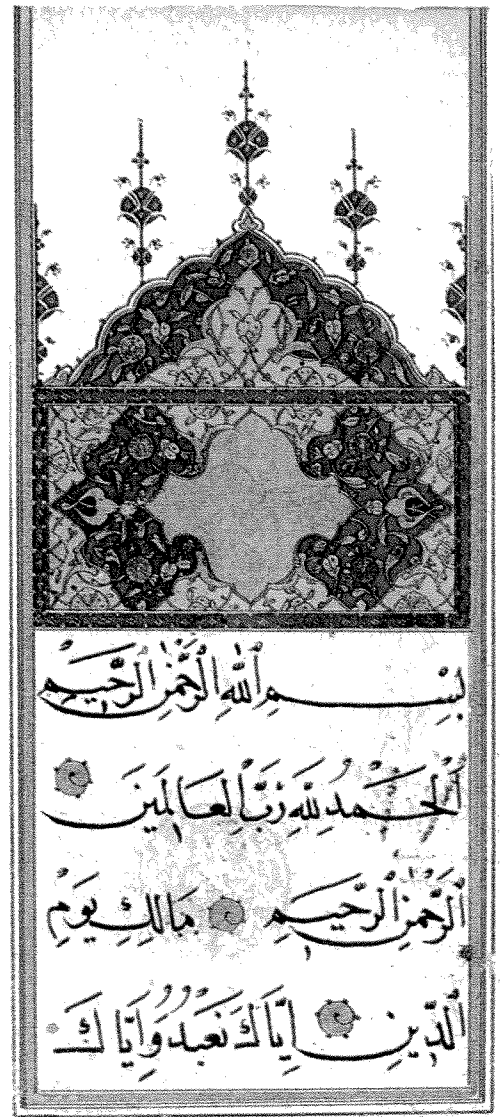 بِسْمِ ٱللَّهِ ٱلرَّحْمَٰنِ ٱلرَّحِيمِ
ٱلْحَمْدُ لِلَّهِ رَبِّ ٱلْعَالَمِينَ
ٱلرَّحْمَٰنِ ٱلرَّحِيمِ مَالِكِ يَوْمِ
ٱلدِّينِ إِيَّاكَ نَعْبُدُ وَإِيَّاكَ